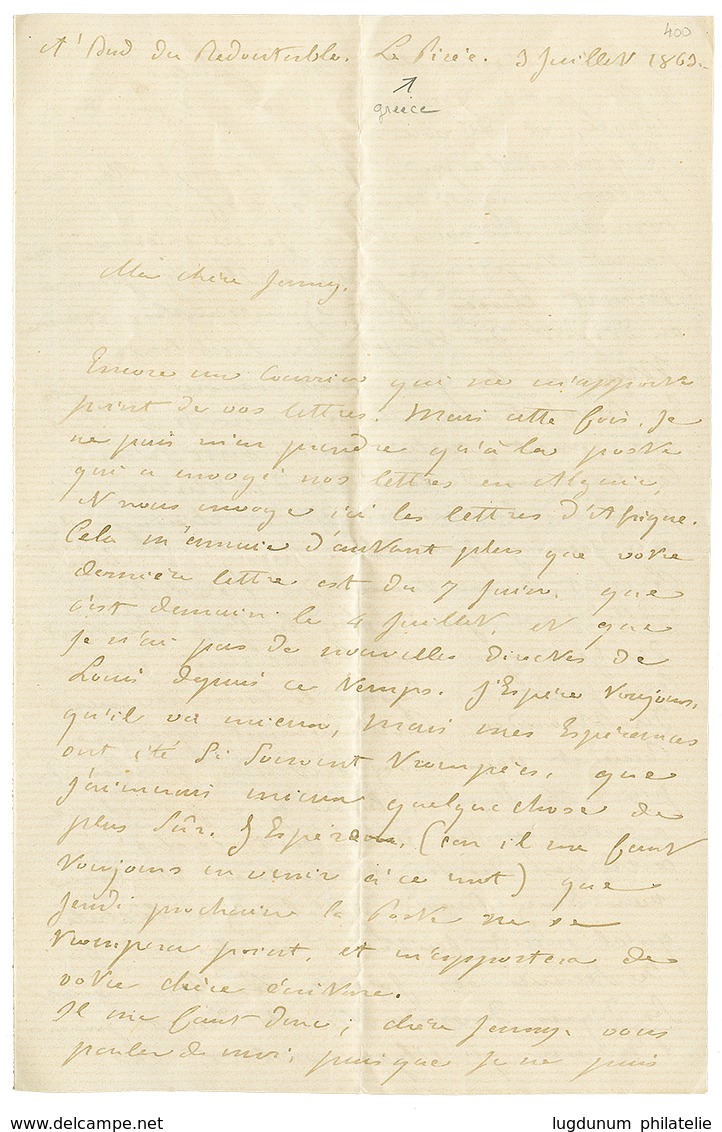 400
A' Bord du Redoutable. Le Pirée. 3 Juillet 1863.
greece
Ma chère Jenny.
Encore un Courrier qui ne m'apporte
point de vos lettres. Mais cette fois, Je
ne puis m'en prendre qu'à la poste
qui a envoyé nos lettres en Algérie,
et nous envoye ici les lettres d'Afrique.
Cela m'ennuie d'autant plus que votre
dernière lettre est du 7 Juin. que
c'est demain le 4 Juillet, et que
Je n'ai pas de nouvelles directes de
Louis depuis ce temps. J'Espère toujours,
qu'il va mieux, Mais mes Espérances
ont été Si Souvent trompées, que
j'aimerais mieux quelque chose de
plus Sûr. J'Espère, (car il me faut
toujours en venir à ce mot) que
Jeudi prochain la Poste ne se
trompera point, et m'apportera de
votre chère écriture.
Il me faut donc, chère Jenny. vous
parler de moi, puisque Je ne puis
www.delcampe.net
lugdunum philatelie